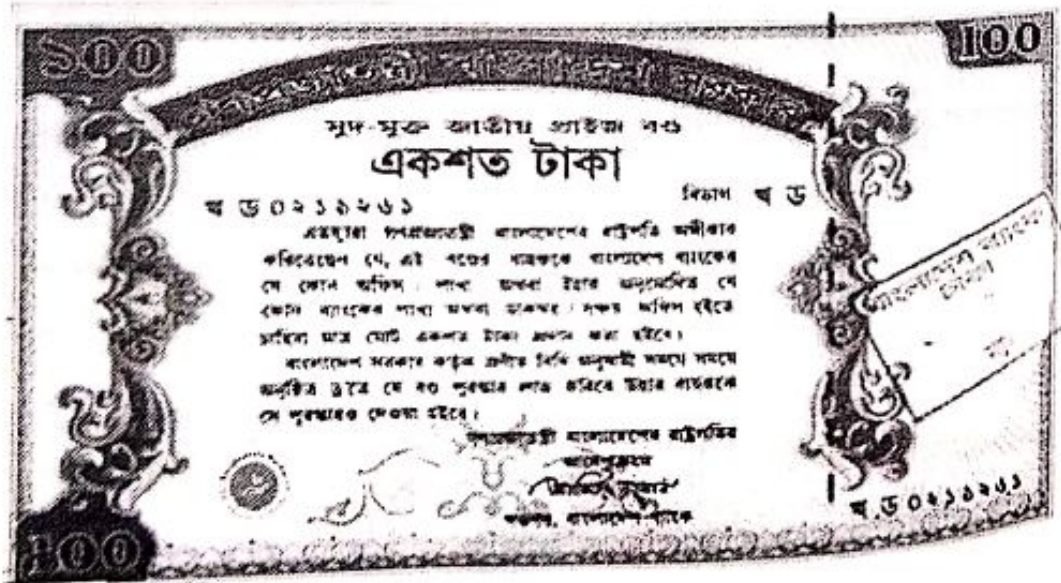 ১০০ 100
গণপ্রজাতন্ত্রী বাংলাদেশ সরকার
সুদ-মুক্ত জাতীয় প্রাইজ বণ্ড
একশত টাকা
বিভাগ খ ড
খ ড ০২১১২৬১
এতদ্দ্বারা গণপ্রজাতন্ত্রী বাংলাদেশের রাষ্ট্রপতি অঙ্গীকার
করিতেছেন যে, এই বণ্ডের বাহককে বাংলাদেশ ব্যাংকের
যে কোন অফিস / শাখা অথবা ইহার অনুমোদিত যে
কোন ব্যাংকের শাখা অথবা ডাকঘর / সঞ্চয় অফিস হইতে
চাহিবা মাত্র মোট একশত টাকা প্রদান করা হইবে।
বাংলাদেশ সরকার কর্তৃক প্রণীত বিধি অনুযায়ী সময়ে সময়ে
অনুষ্ঠিত ড্র'তে যে বণ্ড পুরস্কার লাভ করিবে উহার বাহককে
সে পুরস্কারও দেওয়া হইবে।
গণপ্রজাতন্ত্রী বাংলাদেশের রাষ্ট্রপতির
আদেশক্রমে
গভর্নর, বাংলাদেশ ব্যাংক
বাংলাদেশ ব্যাংক
খ ড ০২১১২৬১
১00